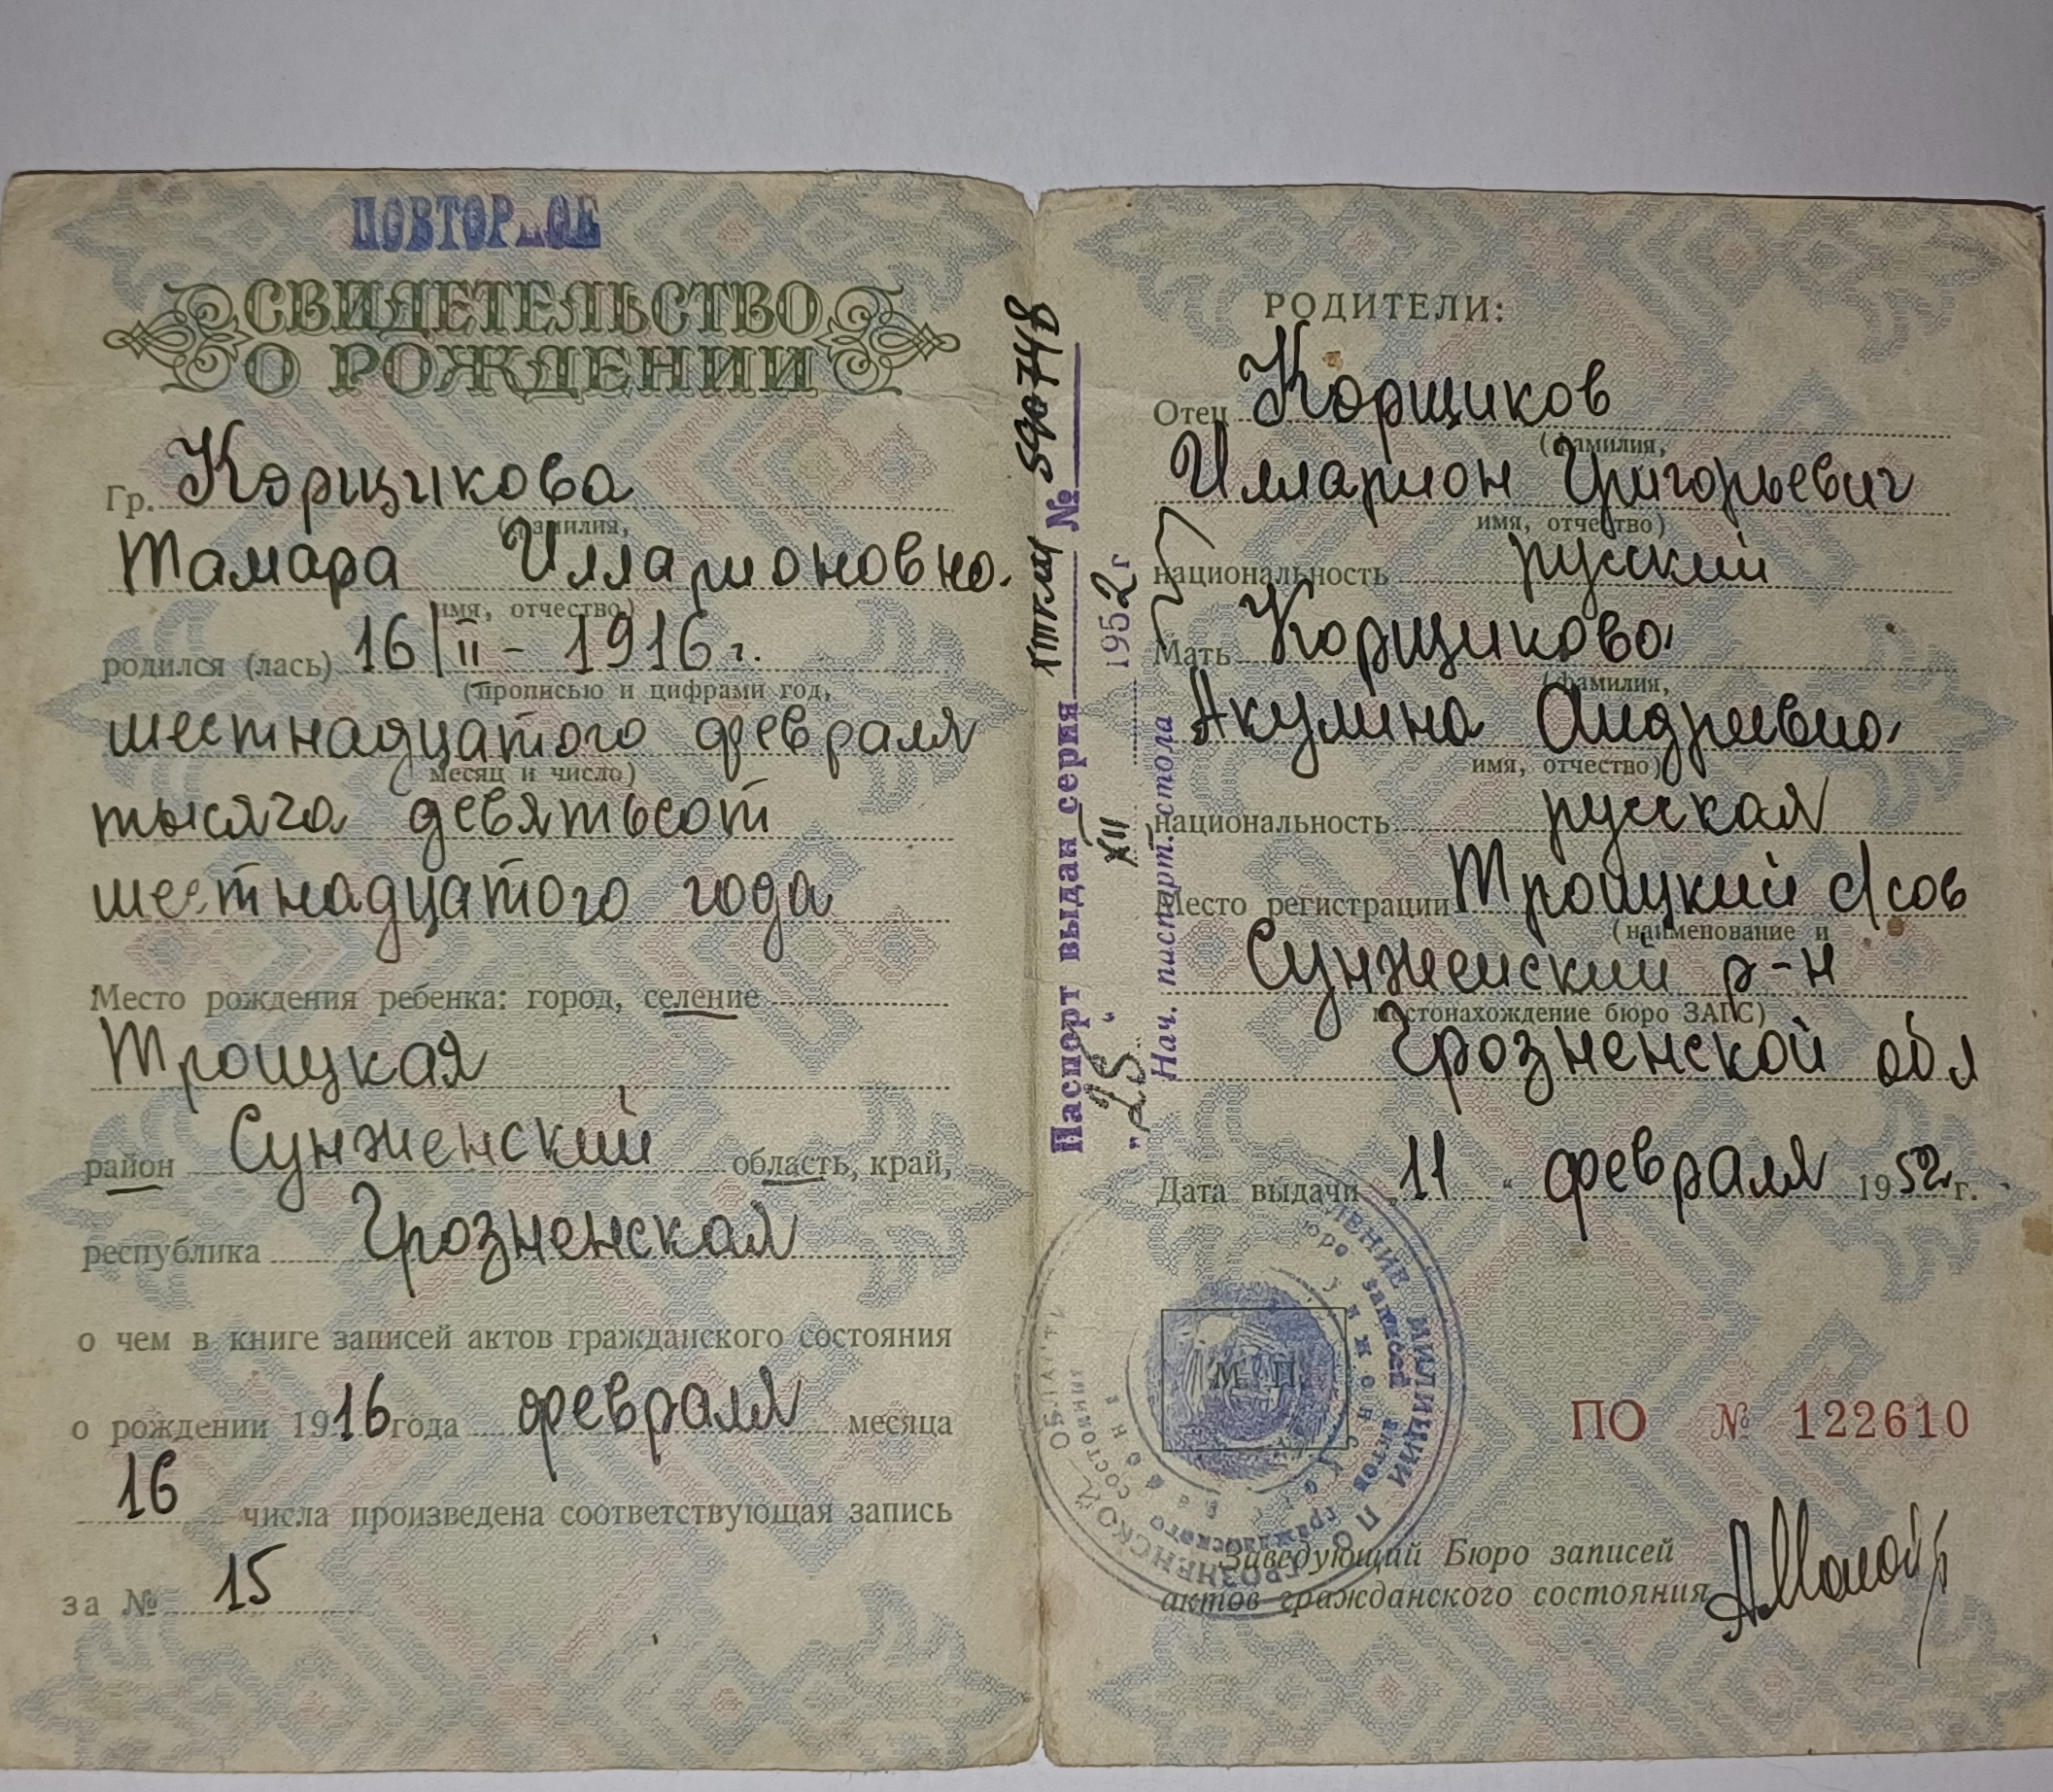 ПОВТОРНОЕ
СВИДЕТЕЛЬСТВО
О РОЖДЕНИИ
Гр. Корщикова
(фамилия,
Тамара Илларионовна
имя, отчество)
родился (лась) 16/II - 1916 г.
(прописью и цифрами год,
шестнадцатого февраля
месяц и число)
тысяча девятьсот
шестнадцатого года
Место рождения ребенка: город, селение
Троицкая
район Сунженский область, край,
республика Грозненская
о чем в книге записей актов гражданского состояния
о рождении 1916 года февраля месяца
16 числа произведена соответствующая запись
за № 15
Паспорт выдан серия №
"25" XII 1952 г
Нач. паспорт. стола
РОДИТЕЛИ:
Отец Корщиков
(фамилия,
Илларион Григорьевич
имя, отчество)
национальность русский
Мать Корщикова
(фамилия,
Акулина Андреевна
имя, отчество)
национальность русская
Место регистрации Троицкий с/сов
(наименование и
Сунженский р-н
местонахождение бюро ЗАГС)
Грозненской обл
Дата выдачи „11" февраля 1952 г.
М. П.
ПО № 122610
Заведующий Бюро записей
актов гражданского состояния